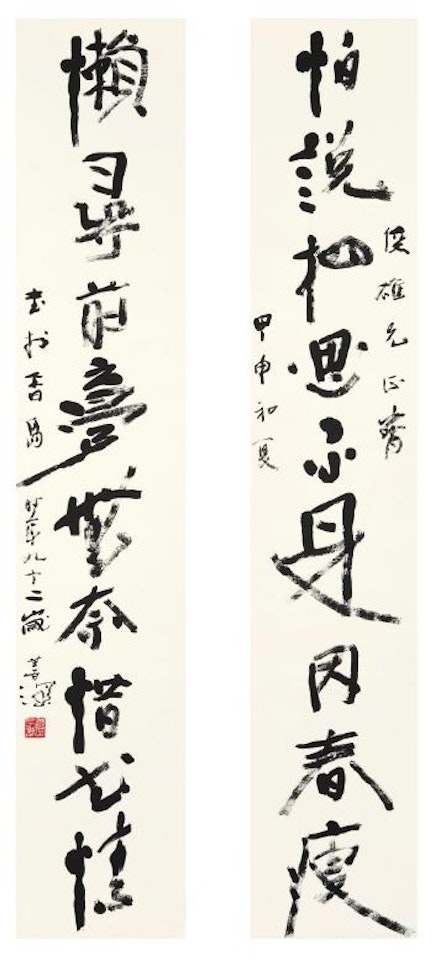 怕說相思不是因春瘦
俊雄兄正
甲申初夏
懶尋前夢無奈惜花情
書於香島時年九十二歲